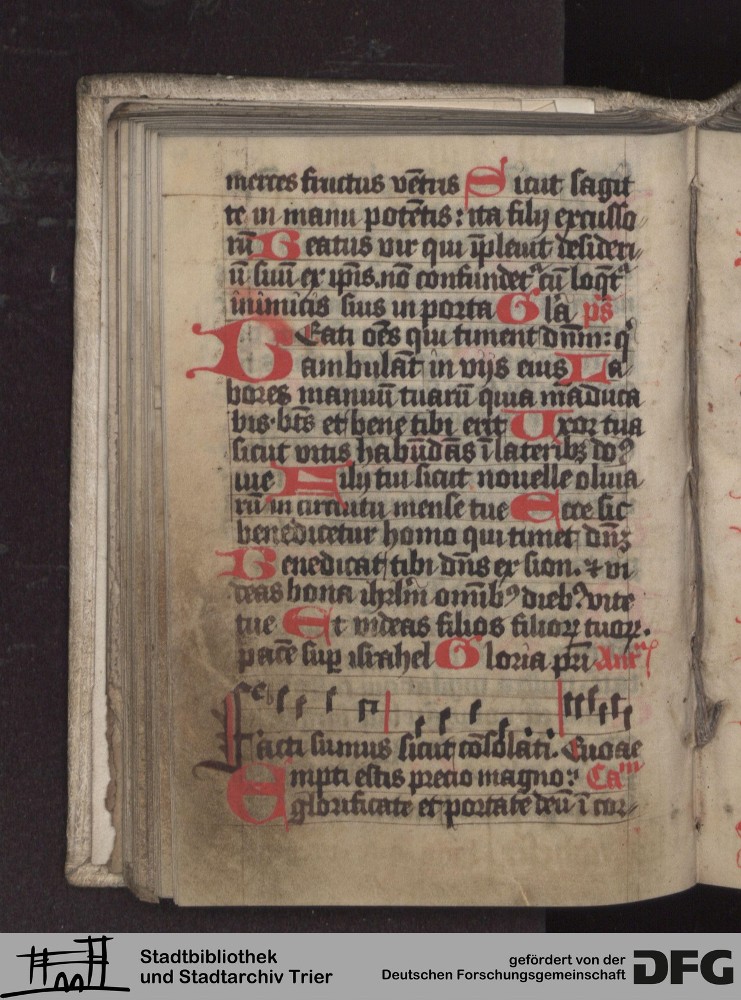 merces fructus vēt̄ris Sicut sagit
te in manu potētis: ita filij excusso
rū Beatus vir qui īpleuit desideri
ū suū ex ip̄is. nō confundetᷣ cū loqt̄ᷣ
inimicis suis in porta Gl̄a p̄s
Beati om̄s qui timent dn̄m: qͥ
ambulāt in vijs eius La
bores manuū tuarū quia māduca
bis. bt̄s es et bene tibi erit Uxor tua
sicut vitis habūdās ī lateribꝫ do
tue Filij tui sicut nouelle oliua
rū in circuitu mense tue Ecce sic
benedicetur homo qui timet dn̄ꝫ
Benedicat tibi dn̄s ex sion. ⁊ vi
deas bona ihrlm̄ omībꝰ diebꝰ vite
tue Et videas filios filioꝝ tuoꝝ.
pacē suꝑ israhel Gloria pr̄i An̄
Facti sumus sicut cōsolati. Euoae
Empti estis precio magno: Caᵐ
glorificate et portate deū ī cor
Stadtbibliothek
und Stadtarchiv Trier
gefördert von der
Deutschen Forschungsgemeinschaft
DFG